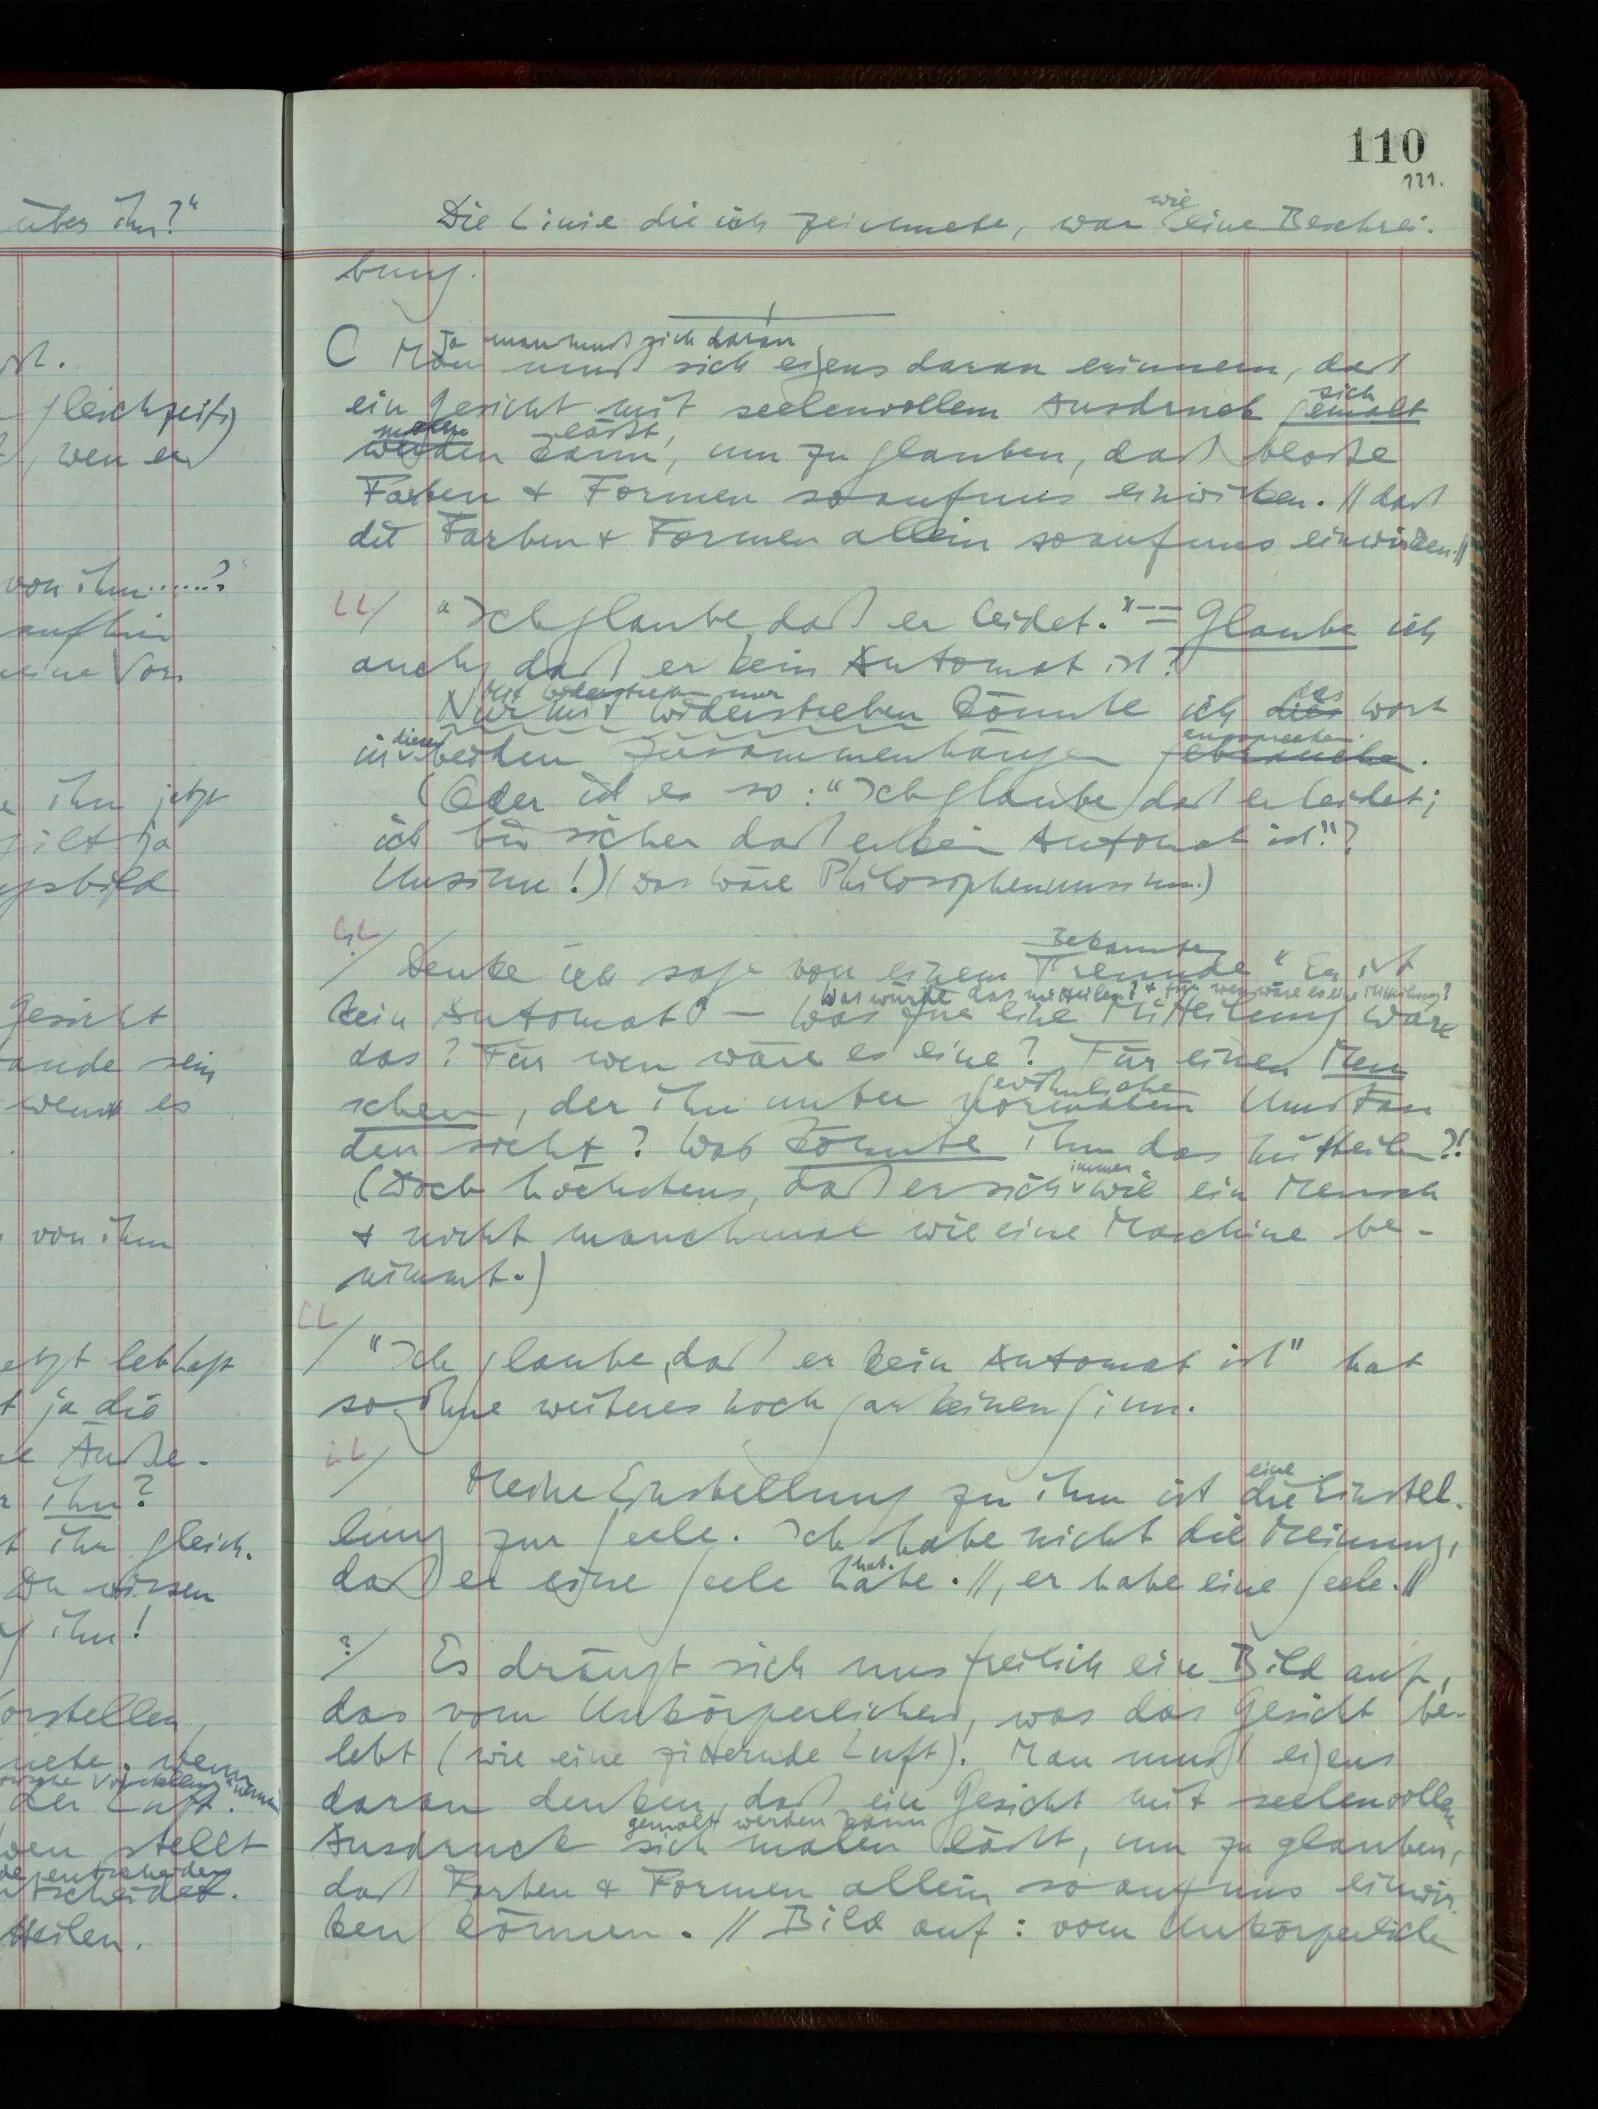 über ihn?"
ist.
gleichzeitig
, wenn er
von ihm......?
aufhin
meine Vor
ihn jetzt
gilt ja
gsbild
Gesicht
ande sein
wenn es
von ihm
jetzt lebhaft
t ja die
Äuße-
ihn?
ihn gleich.
Du wissen
ihn!
orstellen,
nete. wenn
Vorstellung
der Luft.
wen stellt
entscheidet.
teilen.
110
111.
wie
Die Linie die ich zeichnete, war eine Beschrei-
bung.
Ja man muß sich daran
C Man muß sich eigens daran erinnern, daß
sich
ein Gesicht mit seelenvollem Ausdruck gemalt
malen läßt,
werden kann, um zu glauben, daß bloße
Farben & Formen so auf uns einwirken. // daß
die Farben & Formen allein so auf uns einwirken. //
"Ich glaube, daß er leidet." — Glaube ich
auch, daß er kein Automat ist?
Mit Widerstreben nur das
Nur mit Widerstreben könnte ich dies Wort
diesen aussprechen.
in beiden Zusammenhängen gebrauchen.
(Oder ist es so: "Ich glaube daß er leidet;
ich bin sicher daß er kein Automat ist"?
Unsinn!) (Das wäre Philosophenunsinn.)
Bekannten
/ Denke ich sage von einem Freunde "Er ist
Was würde das mitteilen? & für wen wäre es eine Mitteilung?
kein Automat" — Was für eine Mitteilung wäre
das? Für wen wäre es eine? Für einen Men
gewöhnlichen
schen, der ihn unter normalen Umstän
den sieht? Was könnte ihm das mitteilen?!
immer
(Doch höchstens, daß er sich wie ein Mensch
& nicht manchmal wie eine Maschine be-
nimmt.)
/ "Ich glaube, daß er kein Automat ist" hat
so, ohne weiteres noch gar keinen Sinn.
eine
/ Meine Einstellung zu ihm ist die Einstel-
lung zur Seele. Ich habe nicht die Meinung,
hat.
daß er eine Seele habe. //, er habe eine Seele. //
?/ Es drängt sich uns freilich ein Bild auf,
das vom Unkörperlichen, was das Gesicht be-
lebt (wie eine zitternde Luft). Man muß eigens
daran denken, daß ein Gesicht mit seelenvollem
gemalt werden kann
Ausdruck sich malen läßt, um zu glauben,
daß Farben & Formen allein so auf uns einwir-
ken können. // Bild auf: vom Unkörperlichen